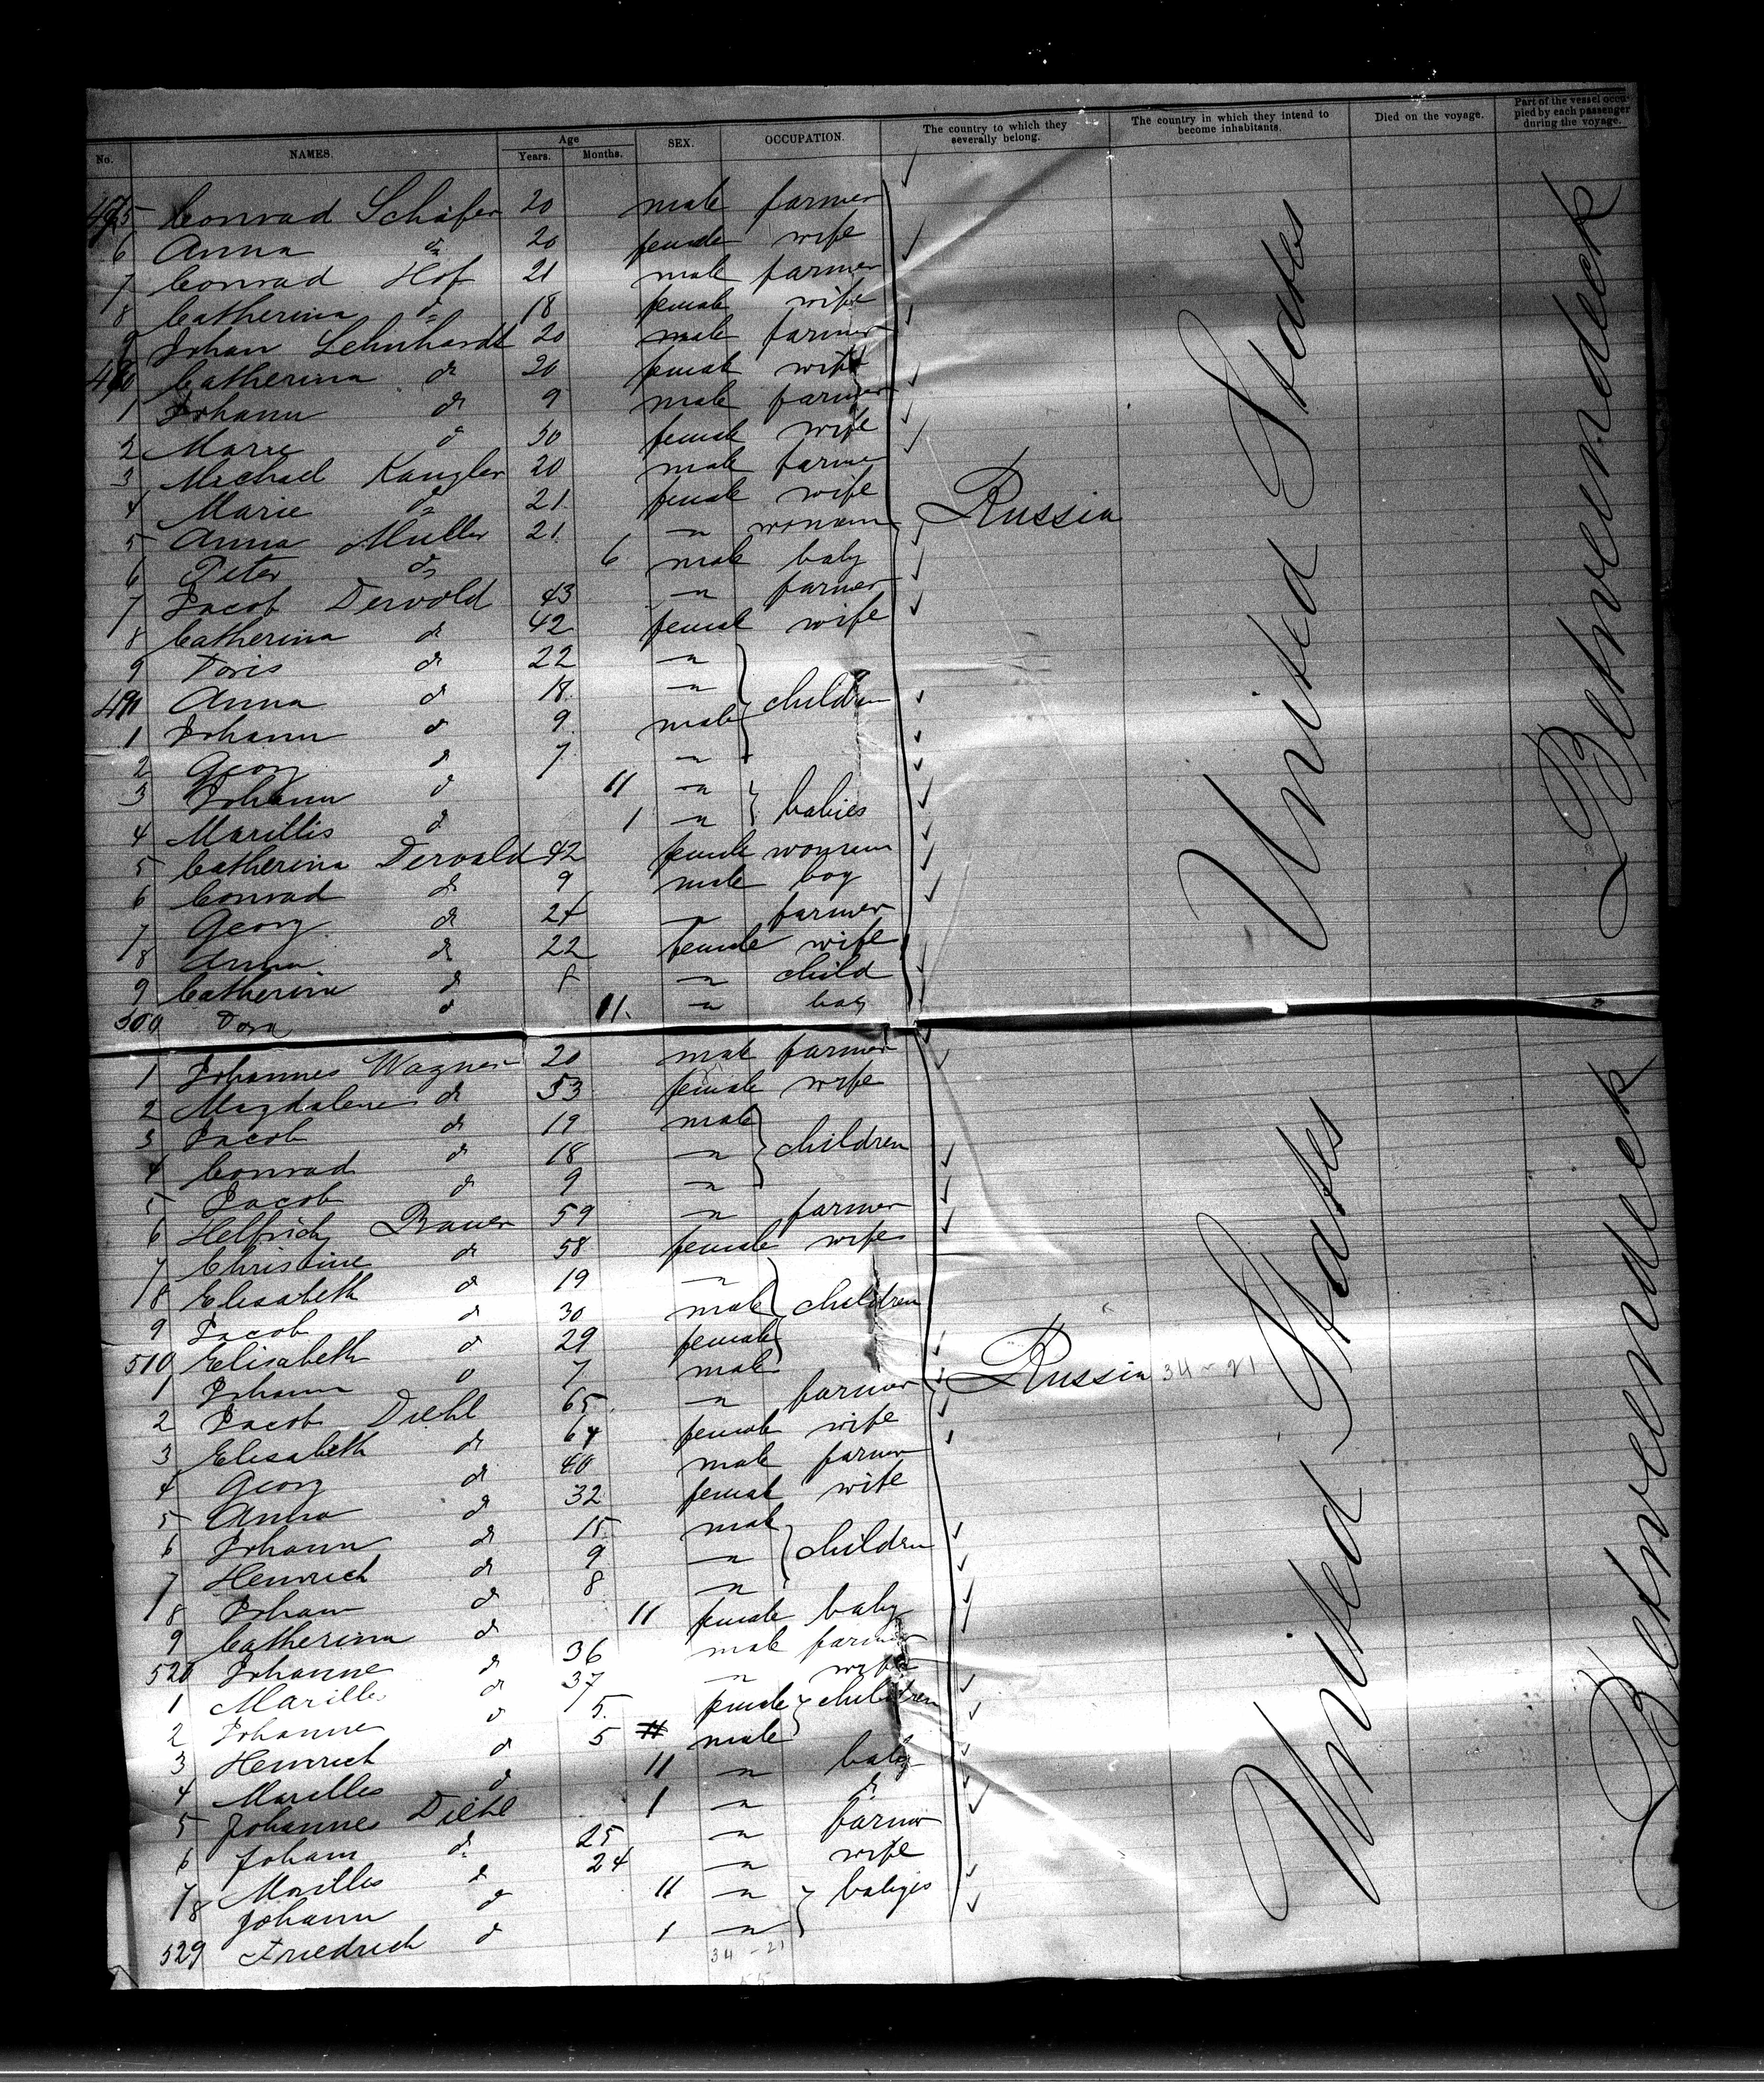 No. NAMES. Age Years. Months. SEX. OCCUPATION. The country to which they severally belong. The country in which they intend to become inhabitants. Died on the voyage. Part of the vessel occupied by each passenger during the voyage.
475 Conrad Schäfer 20 male farmer
6 Anna do 20 female wife
7 Conrad Hof 21 male farmer
8 Catherina do 18 female wife
9 Johan Lehnhardt 20 male farmer
480 Catherina do 20 female wife
1 Johann do 9 male farmer
2 Marie do 50 female wife
3 Michael Kangler 20 male farmer
4 Marie do 21 female wife
5 Anna Muller 21 -"- woman
6 Peter do 6 male baby
7 Jacob Dervold 43 -"- farmer
8 Catherina do 42 female wife
9 Doris do 22 -"-
490 Anna do 18 -"- children
1 Johann do 9 male
2 Georg do 7 -"-
3 Johann do 11 -"- babies
4 Marillis do 1 -"-
5 Catherina Dervald 42 female woman
6 Conrad do 9 male boy
7 Georg do 24 -"- farmer
8 Anna do 22 female wife
9 Catherine do -"- child
500 Dora do 11. -"-
Russia
United States
Betweendeck
1 Johannes Wagner 20 male farmer
2 Magdalene do 53 female wife
3 Jacob do 19 male
4 Conrad do 18 -"- children
5 Jacob do 9 -"-
6 Helfrich Bauer 59 -"- farmer
7 Christine do 58 female wife
8 Elisabeth do 19 -"-
9 Jacob do 30 male children
510 Elisabeth do 29 female
1 Johann do 7 male
2 Jacob Diehl 65 -"- farmer
3 Elisabeth do 64 female wife
4 Georg do 40 male farmer
5 Anna do 32 female wife
6 Johann do 15 male
7 Heinrich do 9 -"- children
8 Johann do 8 -"-
9 Catherina do 11 female baby
520 Johanne do 36 male farmer
1 Marilles do 37 -"- wife
2 Johanne do 5. female children
3 Heinrich do 5 male
4 Marilles do 11 -"- baby
5 Johannes Diehl 1 -"- do
6 Joham do 25 -"- farmer
7 Marilles do 24 -"- wife
8 Johann do 11 -"- babyis
529 Friedrich do 1 -"-
Russia 34 - 21
United States
Betweendeck
34 - 21
55